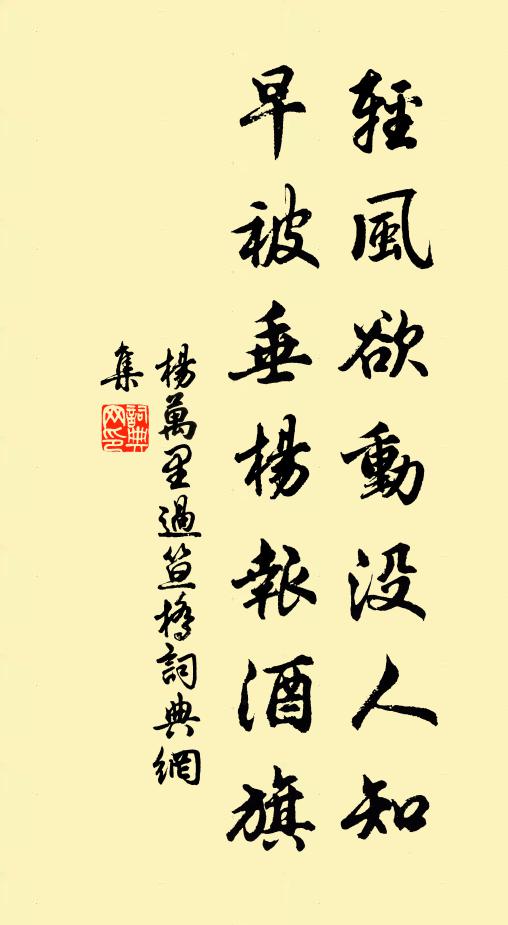 輕風欲動没人知
早被垂楊報酒旗
楊萬里過笪橋詞典網
集
詞典
网印